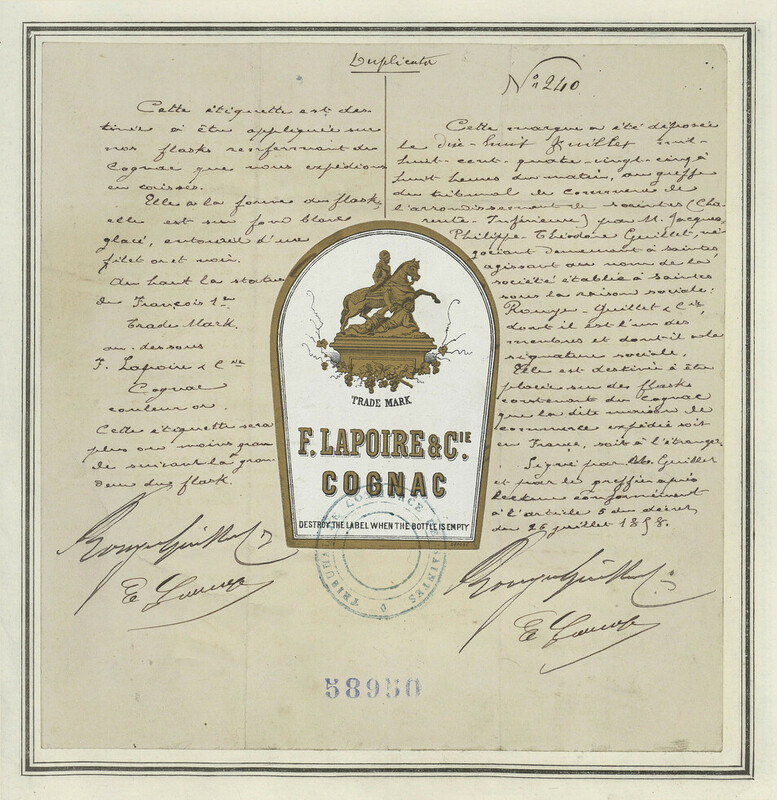 Duplicata
N° 240
Cette étiquette est des-
tinée à être appliquée sur
nos flasks renfermant du
Cognac que nous expédions
en caisses.
Elle a la forme des flasks,
elle est sur fond blanc
glacé, entouré d'une
filet or et noir.
Au haut la statue
de François 1er
Trade Mark.
au-dessous
F. Lapoire & Cie
Cognac
couleur or.
Cette étiquette sera
plus ou moins gran
de suivant la gran
deur des flask.
Cette marque a été déposée
le dix-huit Juillet mil-
huit-cent-quatre-vingt-cinq à
huit heures du matin, au greffe
du tribunal de commerce de
l'arrondissement de Saintes (Cha-
rente-Inférieure) par M. Jacques,
Philippe-Théodore Guillet, né-
gociant demeurant à Saintes
agissant au nom de la
société établie à Saintes
sous la raison sociale:
Rouyer-Guillet & Cie,
dont il est l'un des
membres et dont il a la
signature sociale.
Elle est destinée à être
placée sur des flasks
contenant du Cognac
que la dite maison de
commerce expédie soit
en France, soit à l'étranger.
Signé par Guillet
et par le greffier après
lecture conformément
à l'article 5 du décret
du 26 juillet 1858.
TRADE MARK
F. LAPOIRE & CIE.
COGNAC
DESTROY THE LABEL WHEN THE BOTTLE IS EMPTY
TRIBUNAL DE COMMERCE SAINTES
Rouyer Guillet
Rouyer Guillet
58950